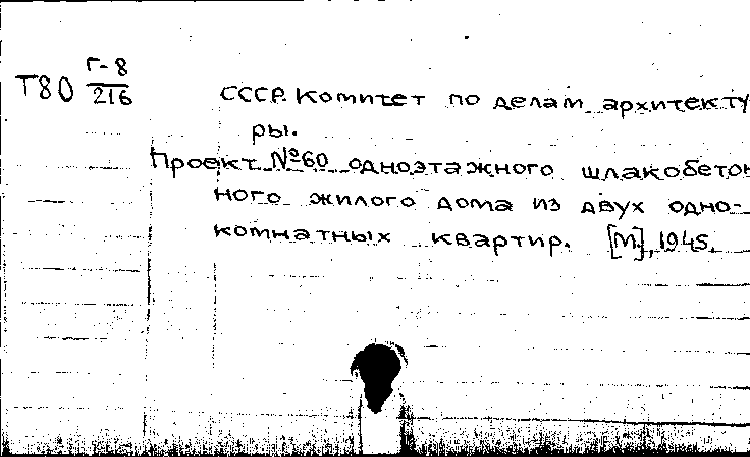 Т80 Г-8/216
СССР. Комитет по делам архитекту
ры.
Проект №60 одноэтажного шлакобетон
ного жилого дома из двух одно-
комнатных квартир. [М], 1945.